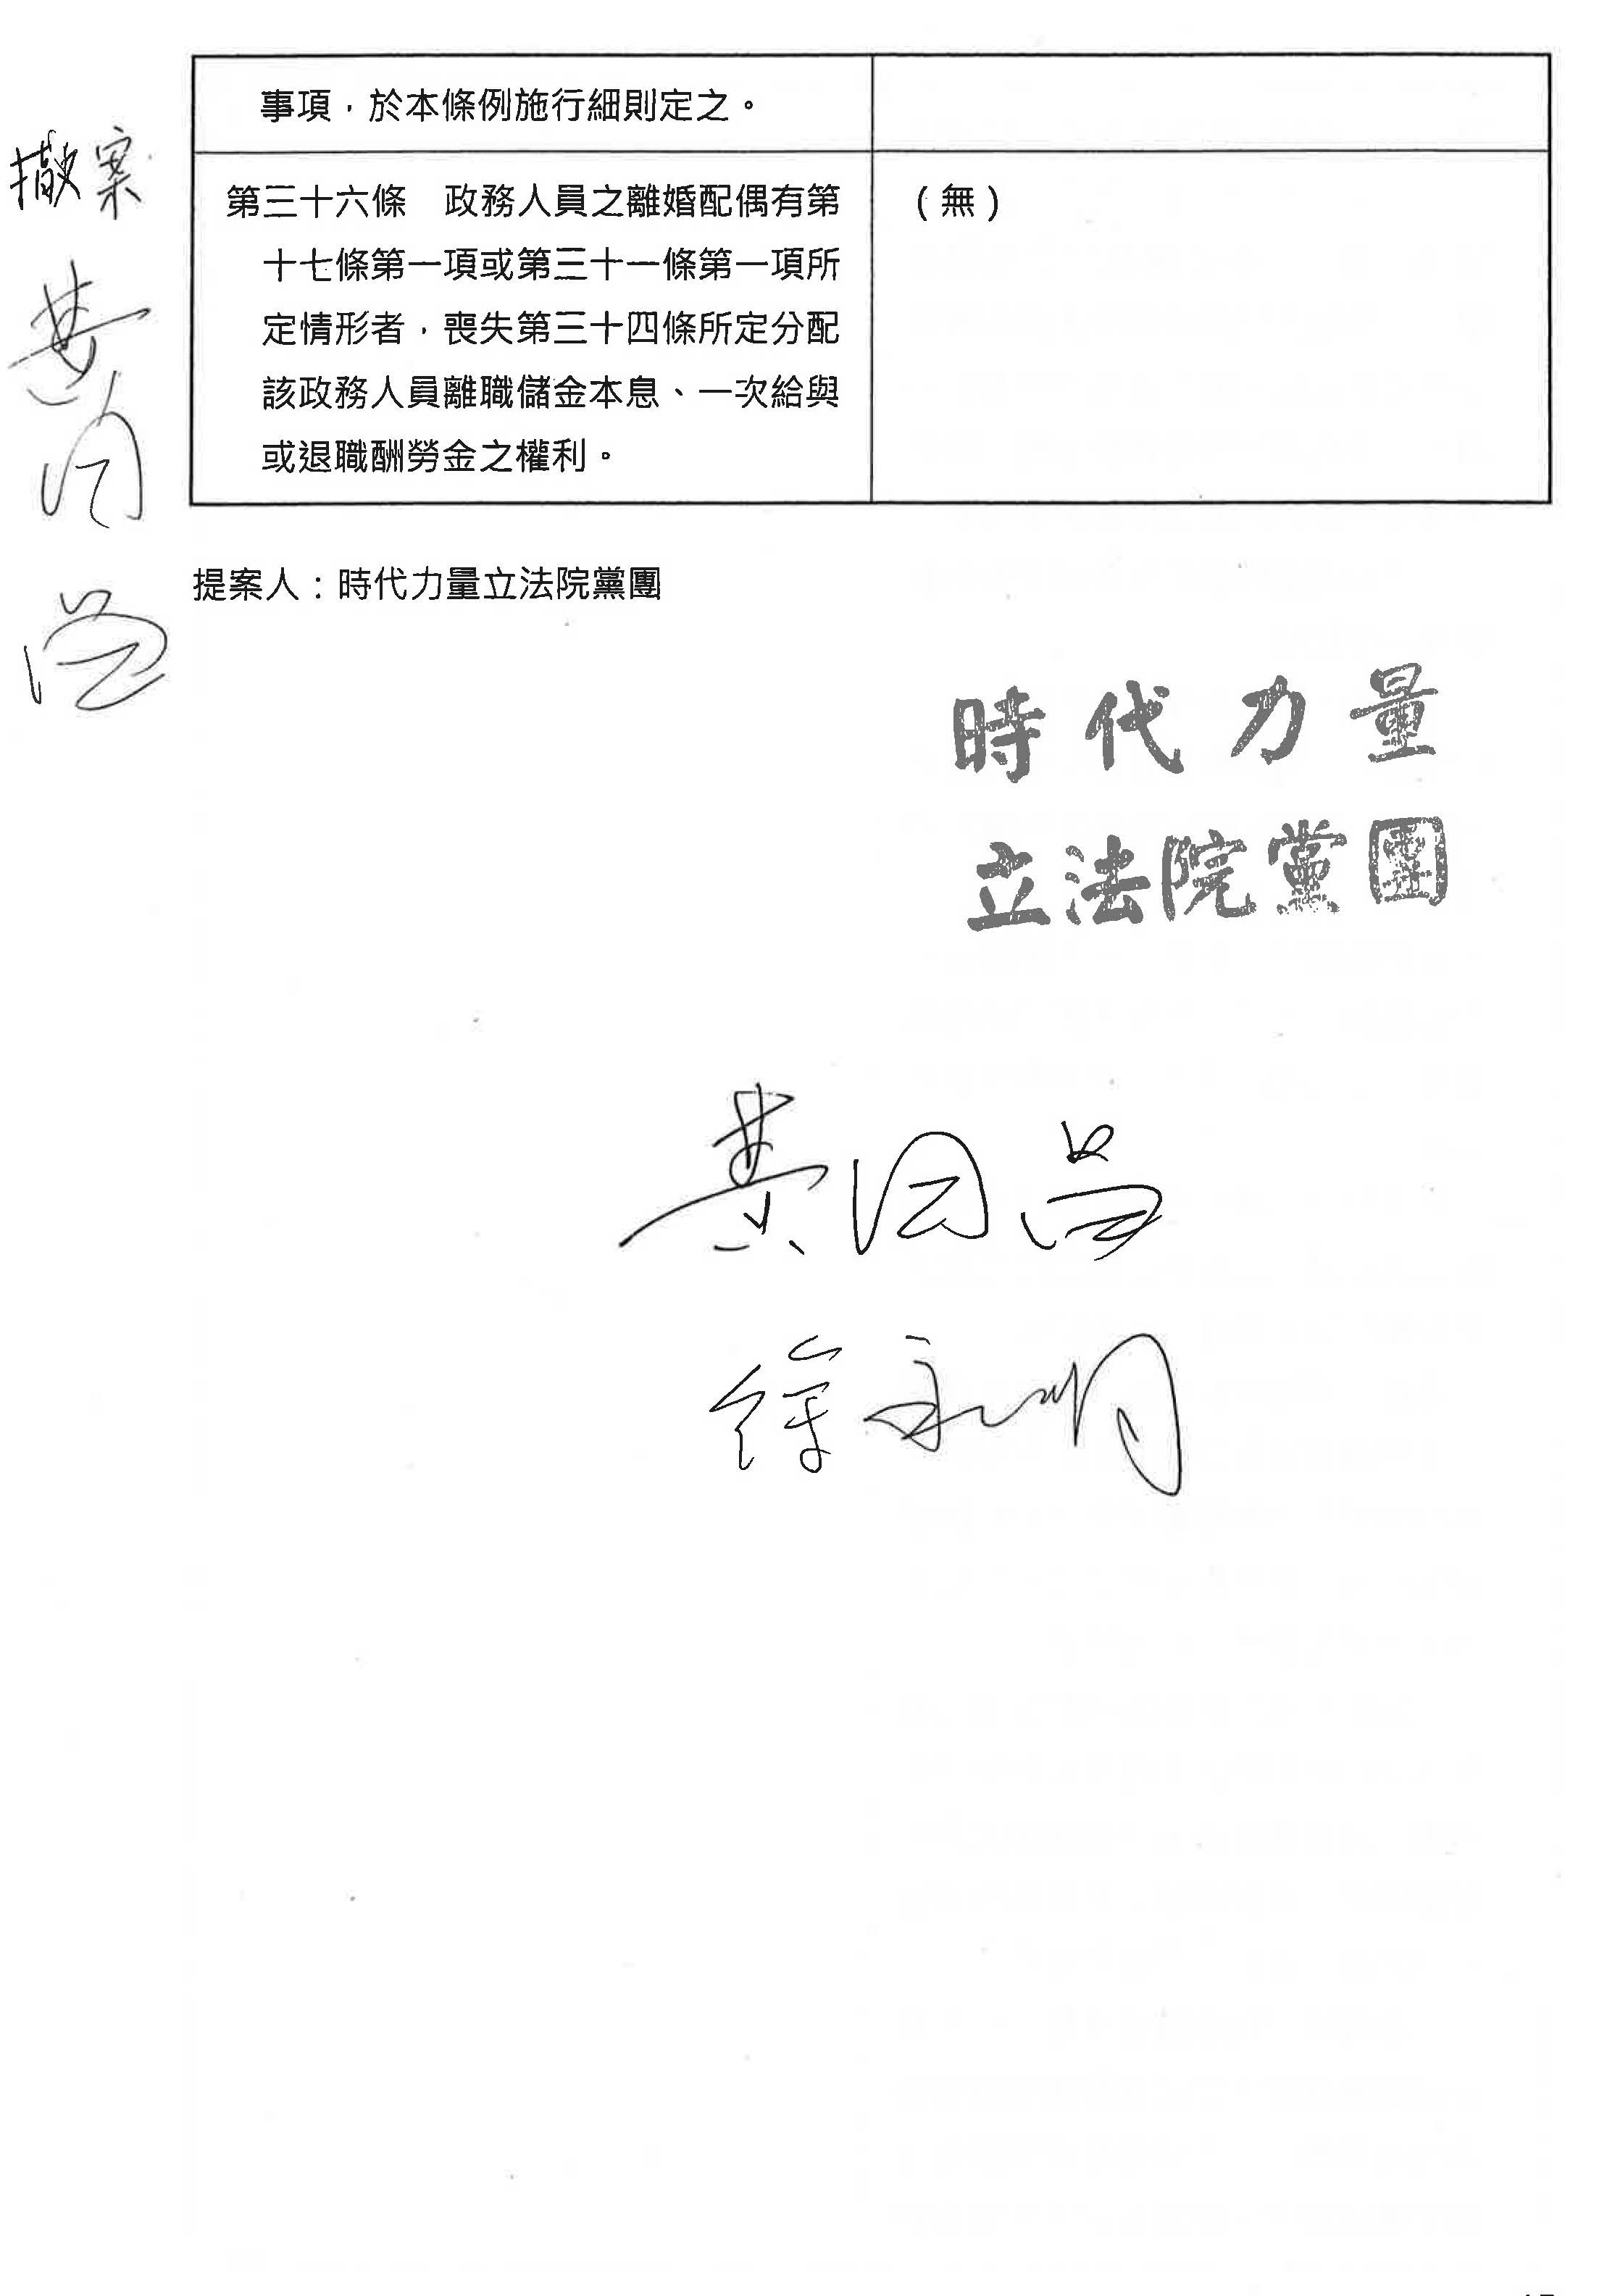 事項，於本條例施行細則定之。
第三十六條　政務人員之離婚配偶有第
十七條第一項或第三十一條第一項所
定情形者，喪失第三十四條所定分配
該政務人員離職儲金本息、一次給與
或退職酬勞金之權利。
（無）
撤案
黃國昌
提案人：時代力量立法院黨團
時代力量
立法院黨團
黃國昌
徐永明